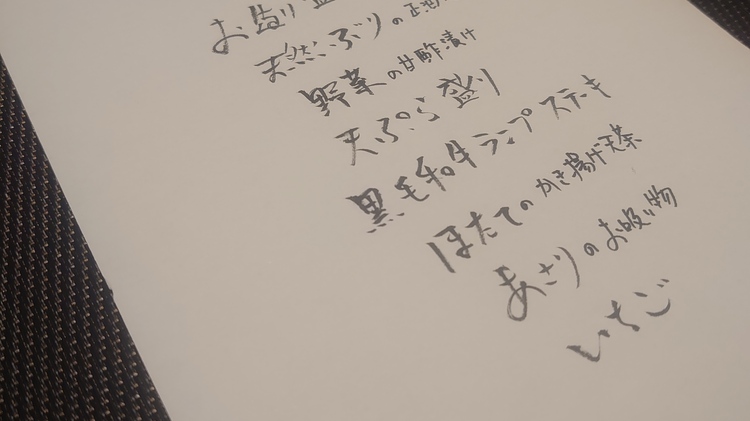 お造り
天然ぶりの
野菜の甘酢漬け
天ぷら盛り
黒毛和牛ランプステーキ
ほたてのかき揚げ天茶
あさりのお吸い物
いちご